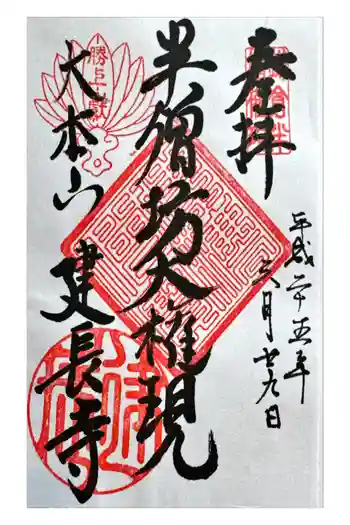 奉拝
平成二十五年
六月廿九日
半僧坊大権現
勝上嶽
大本山
建長寺